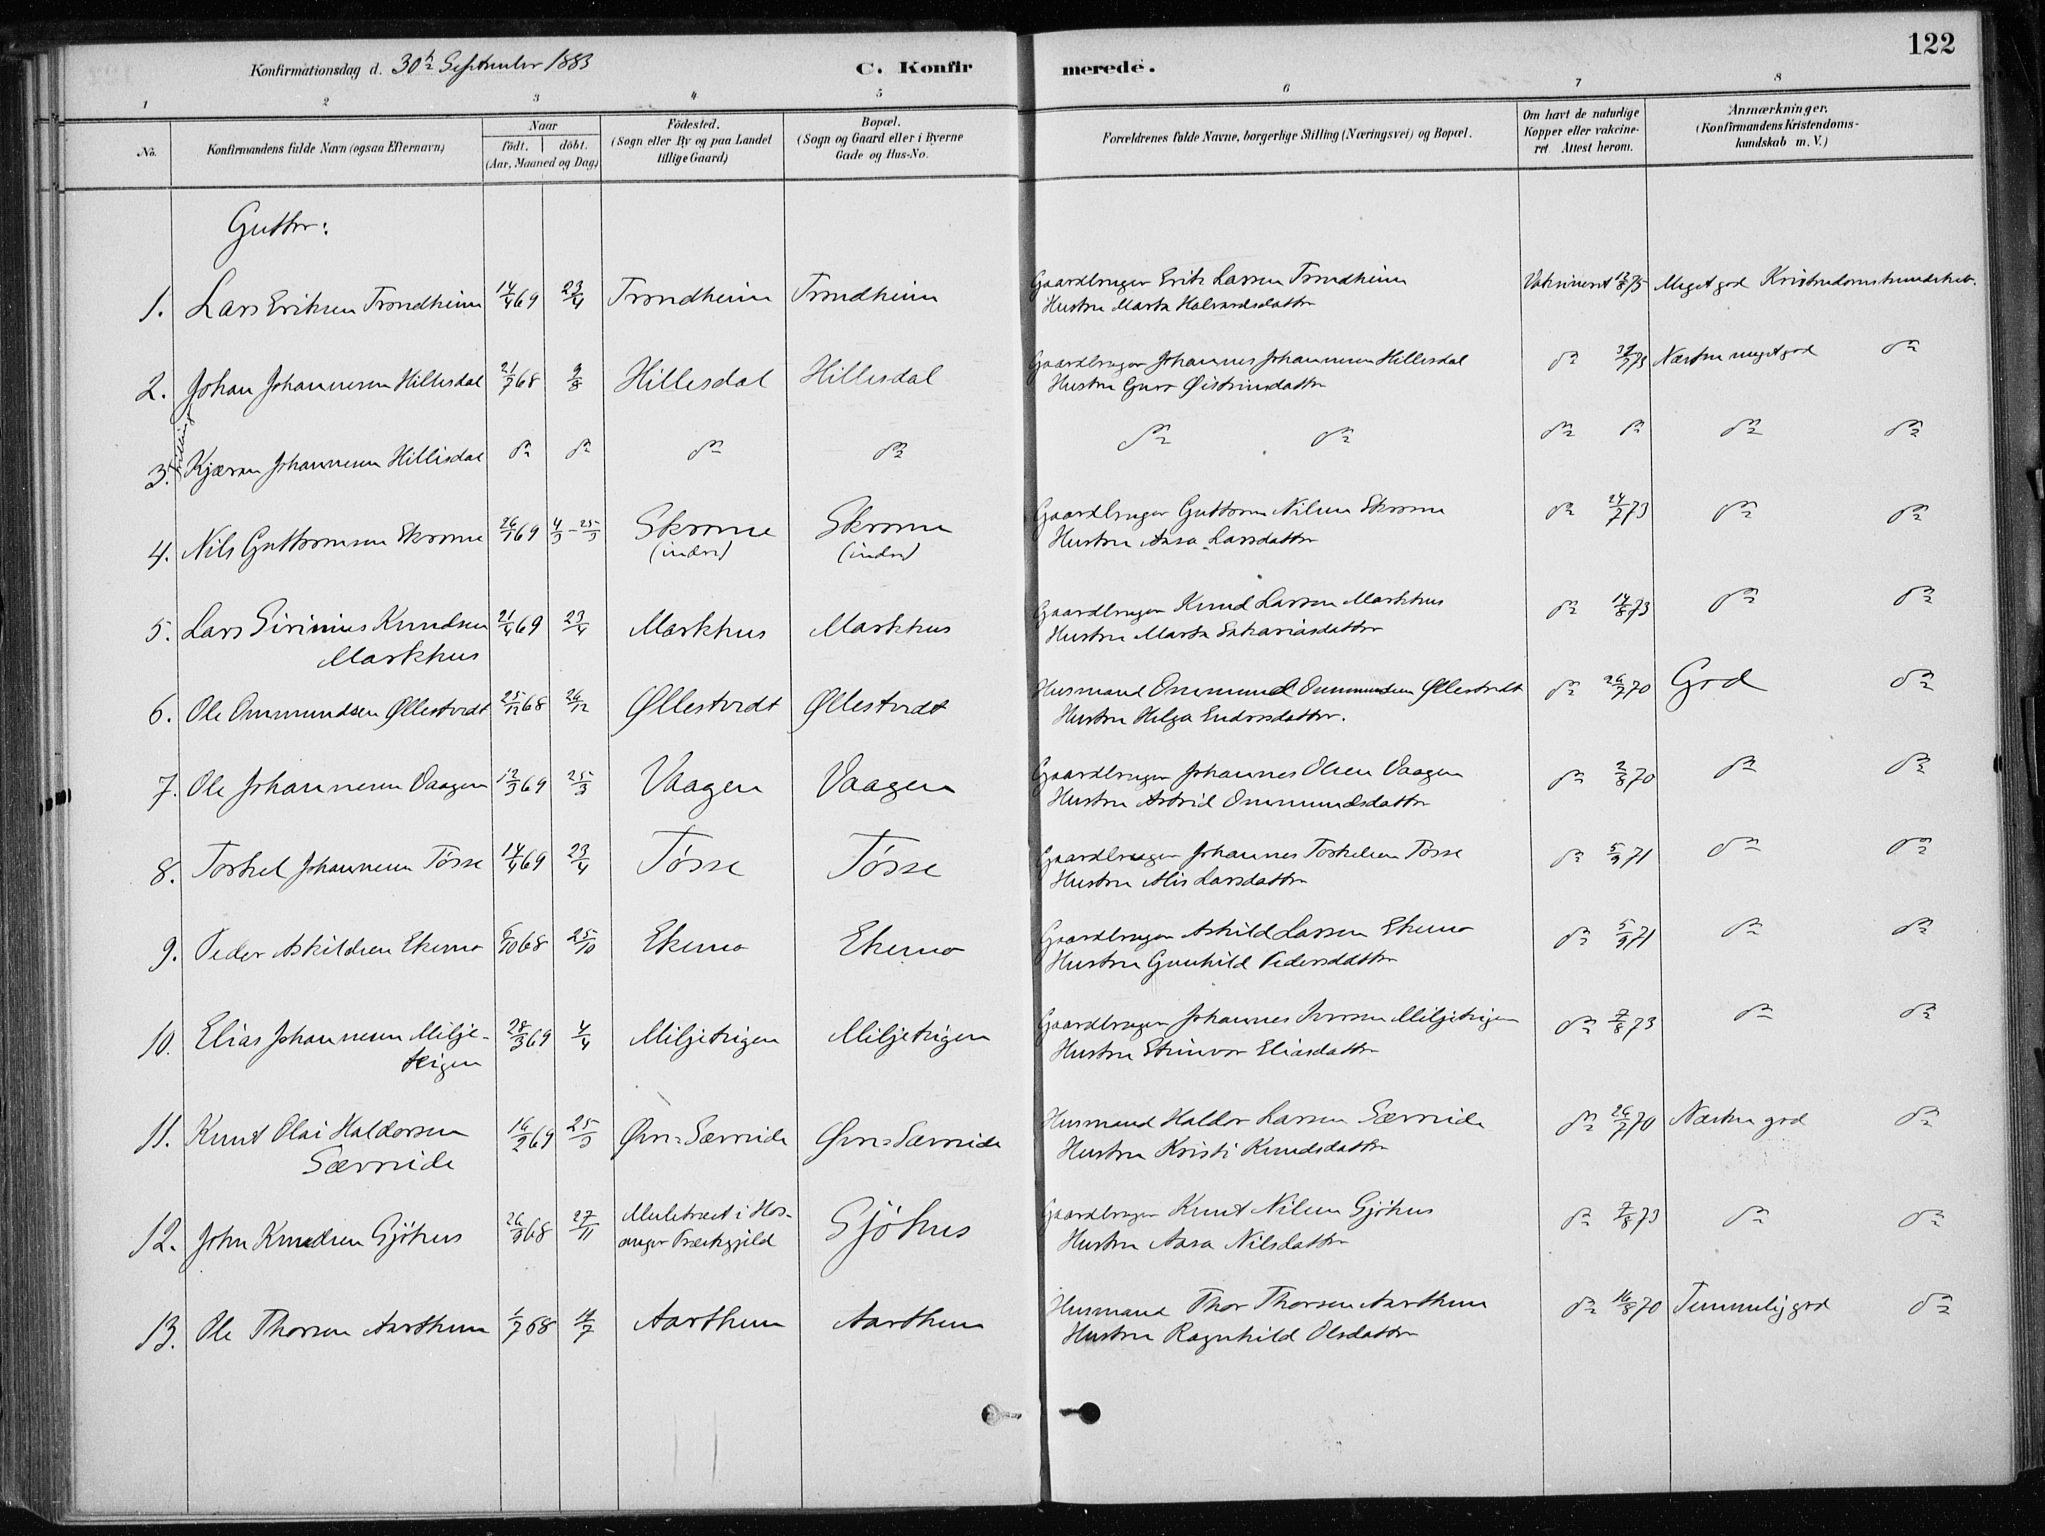 122
Konfirmationsdag d. 30te September 1883 C. Konfirmerede.
1 2 3 4 5 6 7 8
No. Konfirmandens fulde Navn (ogsaa Efternavn) Naar født. døbt. (Aar, Maaned og Dag) Födested. (Sogn eller By og paa Landet tillige Gaard) Bopæl. (Sogn og Gaard eller i Byerne Gade og Hus-No. Forældrenes fulde Navne, borgerlige Stilling (Næringsvei) og Bopæl. Om havt de naturlige Kopper eller vakcineret Attest herom. Anmærkninger. (Konfirmandens Kristendomskundskab m. V.)
Gutter:
1. Lars Eriksen Trondheim 14/4 69 23/4 Trondheim Trondheim Gaardbruger Erik Larsen Trondheim Vaksineret 12/8 75 Meget god Kristendomskundskab
Hustru Marta Halvardsdatter
2. Johan Johannesen Hillesdal 21/7 68 9/8 Hillesdal Hillesdal Gaardbruger Johannes Johannesen Hillesdal do 73 Næsten meget god do
Hustru Guro Øisteinsdatter
3. Tvilling Kjæran Johannesen Hillesdal do do do do do do do do do do
4. Nils Guttormsen Skromme 26/1 69 4/3 - 25/3 Skromme Skromme Gaardbruger Guttorm Nilsen Skromme do 24/7 73 do do
(indre) (indre) Hustru Aasa Larsdatter
5. Lars Sirinius Knudsen 21/4 69 23/4 Markhus Markhus Gaardbruger Knud Larsen Markhus do 14/8 73 do do
Markhus Hustru Marta Sakariasdatter
6. Ole Ommundsen Øllestvedt 25/12 68 26/12 Øllestvedt Øllestvedt Husmand Ommund Ommundsen Øllestvedt do 26/7 70 God do
Hustru Helga Endresdatter.
7. Ole Johannesen Vaagen 12/3 69 25/3 Vaagen Vaagen Gaardbruger Johannes Olsen Vaagen do 2/8 70 do do
Hustru Astrid Ommundsdatter
8. Torkel Johannesen Tösse 14/4 69 23/4 Tösse Tösse Gaardbruger Johannes Torkelsen Tösse do 5/9 71 do do
Hustru Alis Larsdatter
9. Peder Askildsen Ekemo 6/10 68 25/10 Ekemo Ekemo Gaardbruger Askild Larsen Ekemo do 5/9 71 do do
Hustru Gunhild Pedersdatter
10. Elias Johannesen Milje- 28/3 69 4/4 Miljeteigen Miljeteigen Gaardbruger Johannes Iversen Miljeteigen do 7/8 73 do do
teigen Hustru Steinvor Eliasdatter
11. Knut Olai Haldorsen 16/2 69 25/3 Øvre Særveide Øvre Særveide Husmand Haldor Larsen Særveide do 26/7 70 Næsten god do
Særveide Hustru Kristi Knudsdatter
12. John Knudsen Gjöhus 26/9 68 27/11 i Hos- Gjöhus Gaardbruger Knut Nilsen Gjöhus do 7/8 73 do do
anger Præstegjeld Hustru Aasa Nilsdatter
13. Ole Thorsen Aarthun 1/7 68 12/7 Aarthun Aarthun Husmand Thor Thorsen Aarthun do 16/8 70 Temmelig god do
Hustru Ragnhild Olsdatter